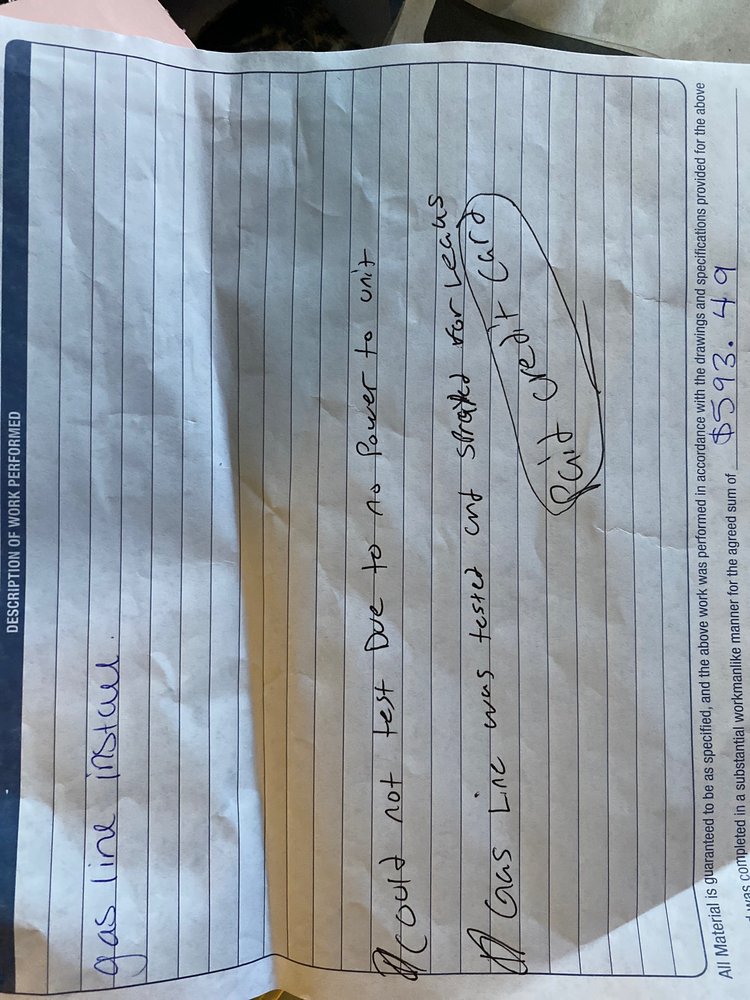 DESCRIPTION OF WORK PERFORMED
gas line install.
Could not test Due to no Power to unit
Gas Line was tested and sprayed for Leaks
Paid credit Card
All Material is guaranteed to be as specified, and the above work was performed in accordance with the drawings and specifications provided for the above
was completed in a substantial workmanlike manner for the agreed sum of $593.49